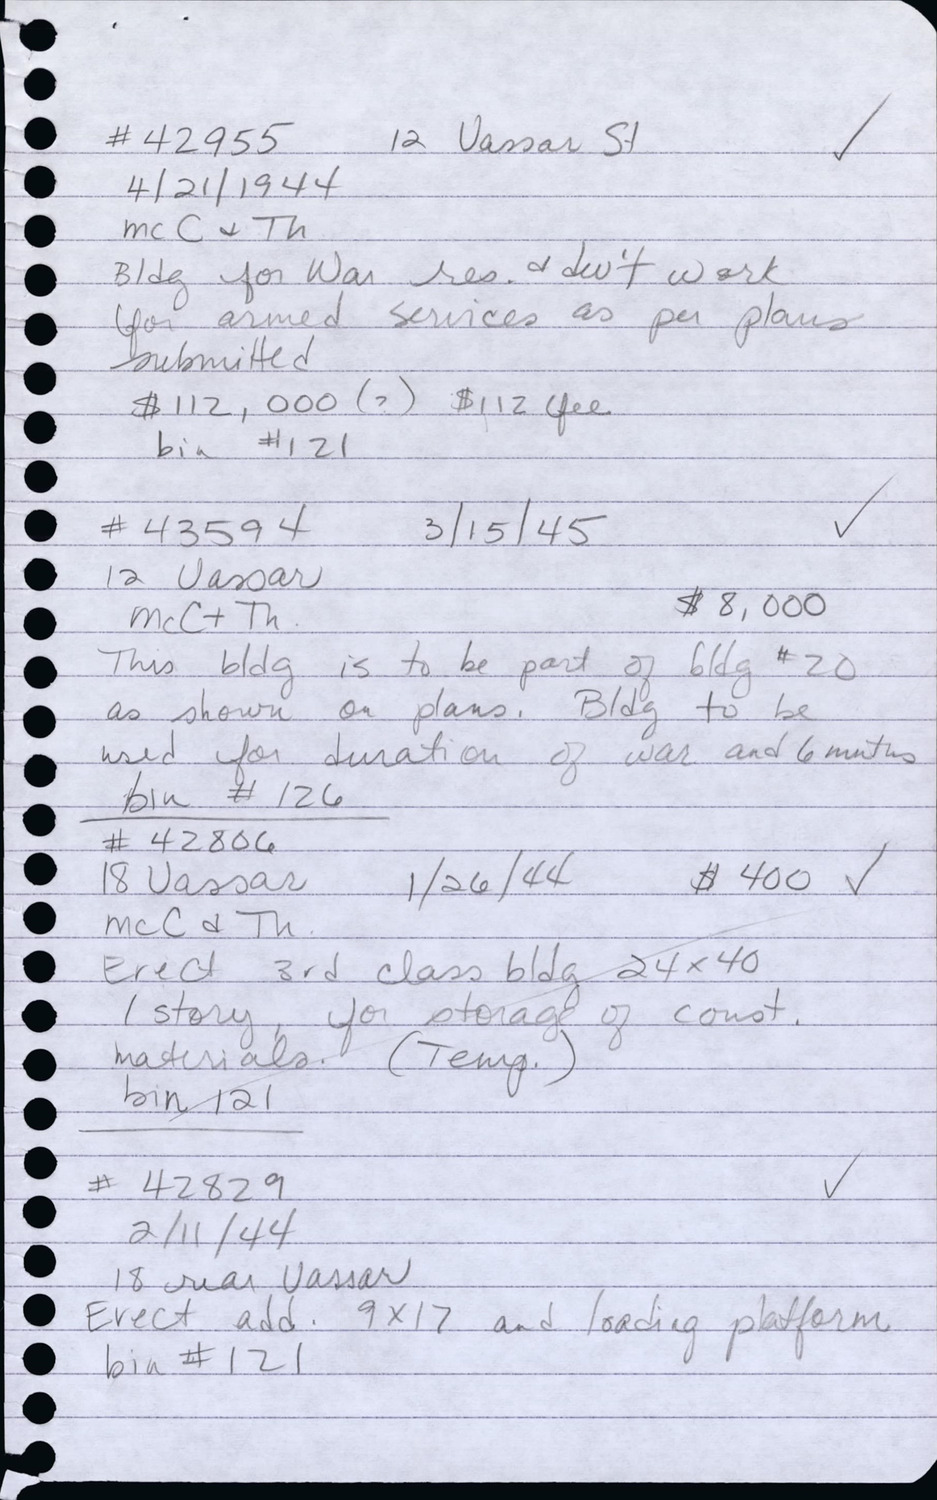 #42955 12 Vassar St ✓
4/21/1944
McC & Th
Bldg for War res. & dev't work
for armed services as per plans
submitted
$112,000 (?) $112 fee
bin #121
#43594 3/15/45 ✓
12 Vassar
McC + Th.
$8,000
This bldg is to be part of bldg #20
as shown on plans. Bldg to be
used for duration of war and 6 months
bin #126
#42806
18 Vassar 1/26/44 $400 ✓
McC & Th.
Erect 3rd class bldg 24x40
1 story, for storage of const.
materials. (Temp.)
bin 121
# 42829 ✓
2/11/44
18 rear Vassar
Erect add. 9x17 and loading platform
bin #121